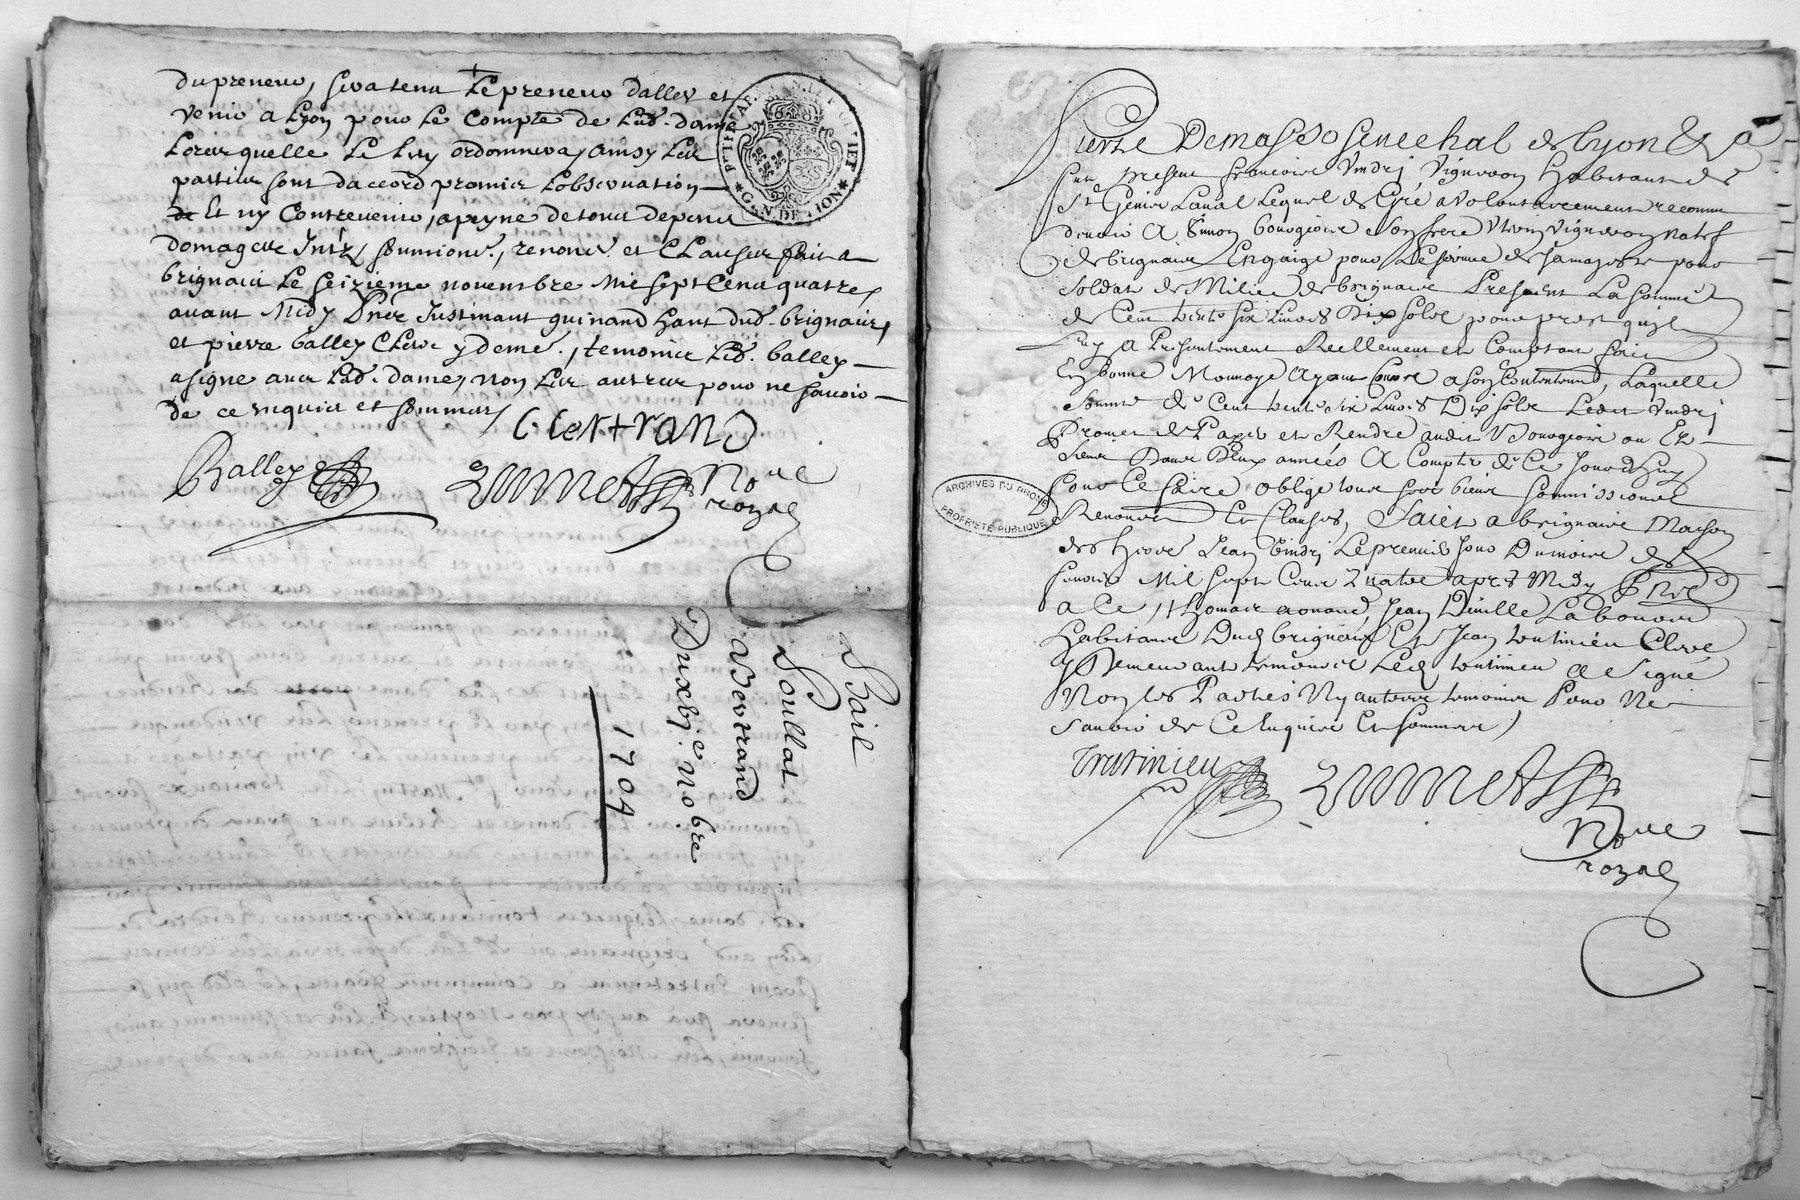 dupreneur, sera tenu Le preneur daller et
venir a Lyon pour Le Compte de Lad. dame
Lorsquelle Le Luy ordonnera, ainsy Les
parties sont daccord promis Lobservation
Et ny Contrevenir, a peyne de tous depens
domages Intz, soumions, renonce et Clauses fait a
brignais Le Seizieme novembre mil sept Cent quatre
avant Midy Justinant guinand hant dud. brignais,
et pierre balley Clerc y demt., temoins Led. balley
a signe avec Lad. dame, non Les autres pour ne scavoir
de ce enquis et sommes
Bertrand
Balley
Nore
royal
Bail
Soullat
Bertrand
Duxbj.e Nobre
1704
PTIE GEN DE LION
Pierre Demasso Senechal de Lyon &
fut present francois Vindrj Vigneron Habitant de
St Genis Laval Lequel de Gré a Volontairement reconnu
devoir A Simon bourgeois son frere Vigneron natif
de brignais Engaigé pour Le service de sa majesté pour
Soldat de Milice de brignais Present La somme
de Cent trente six Livres Dix solz pour prest quil
Luy a Presentement Reellement et Comptant fait
En bonne Monnoye Ayant Cours a son Contentement, Laquelle
somme de Cent trente six Livres Dix solz Ledit Vindrj
Promet de Payer et Rendre audit Bourgeois ou Es
siens Dans Deux années A Compter de Ce Jourdhuy
pour Ce faire oblige tous ses biens soumissions
Renonces Et Clauses, Faict a brignais Maison
des hoirs Jean Vindrj Le premier Jour Du mois de
fevrier Mil sept Cent quatre apres Midy Pnts
a Ce, thomas Jean Laboureur
habitans Dud brignais Et Jean tratinieu Clerc
y Demeurant temoins Led tratinieu A Signé
Non les Parties Ny autres temoins Pour Ne
Scavoir de Ce Enquis Et Sommes
Tratinieu
Nore
royal
ARCHIVES DU RHONE
PROPRIETE PUBLIQUE